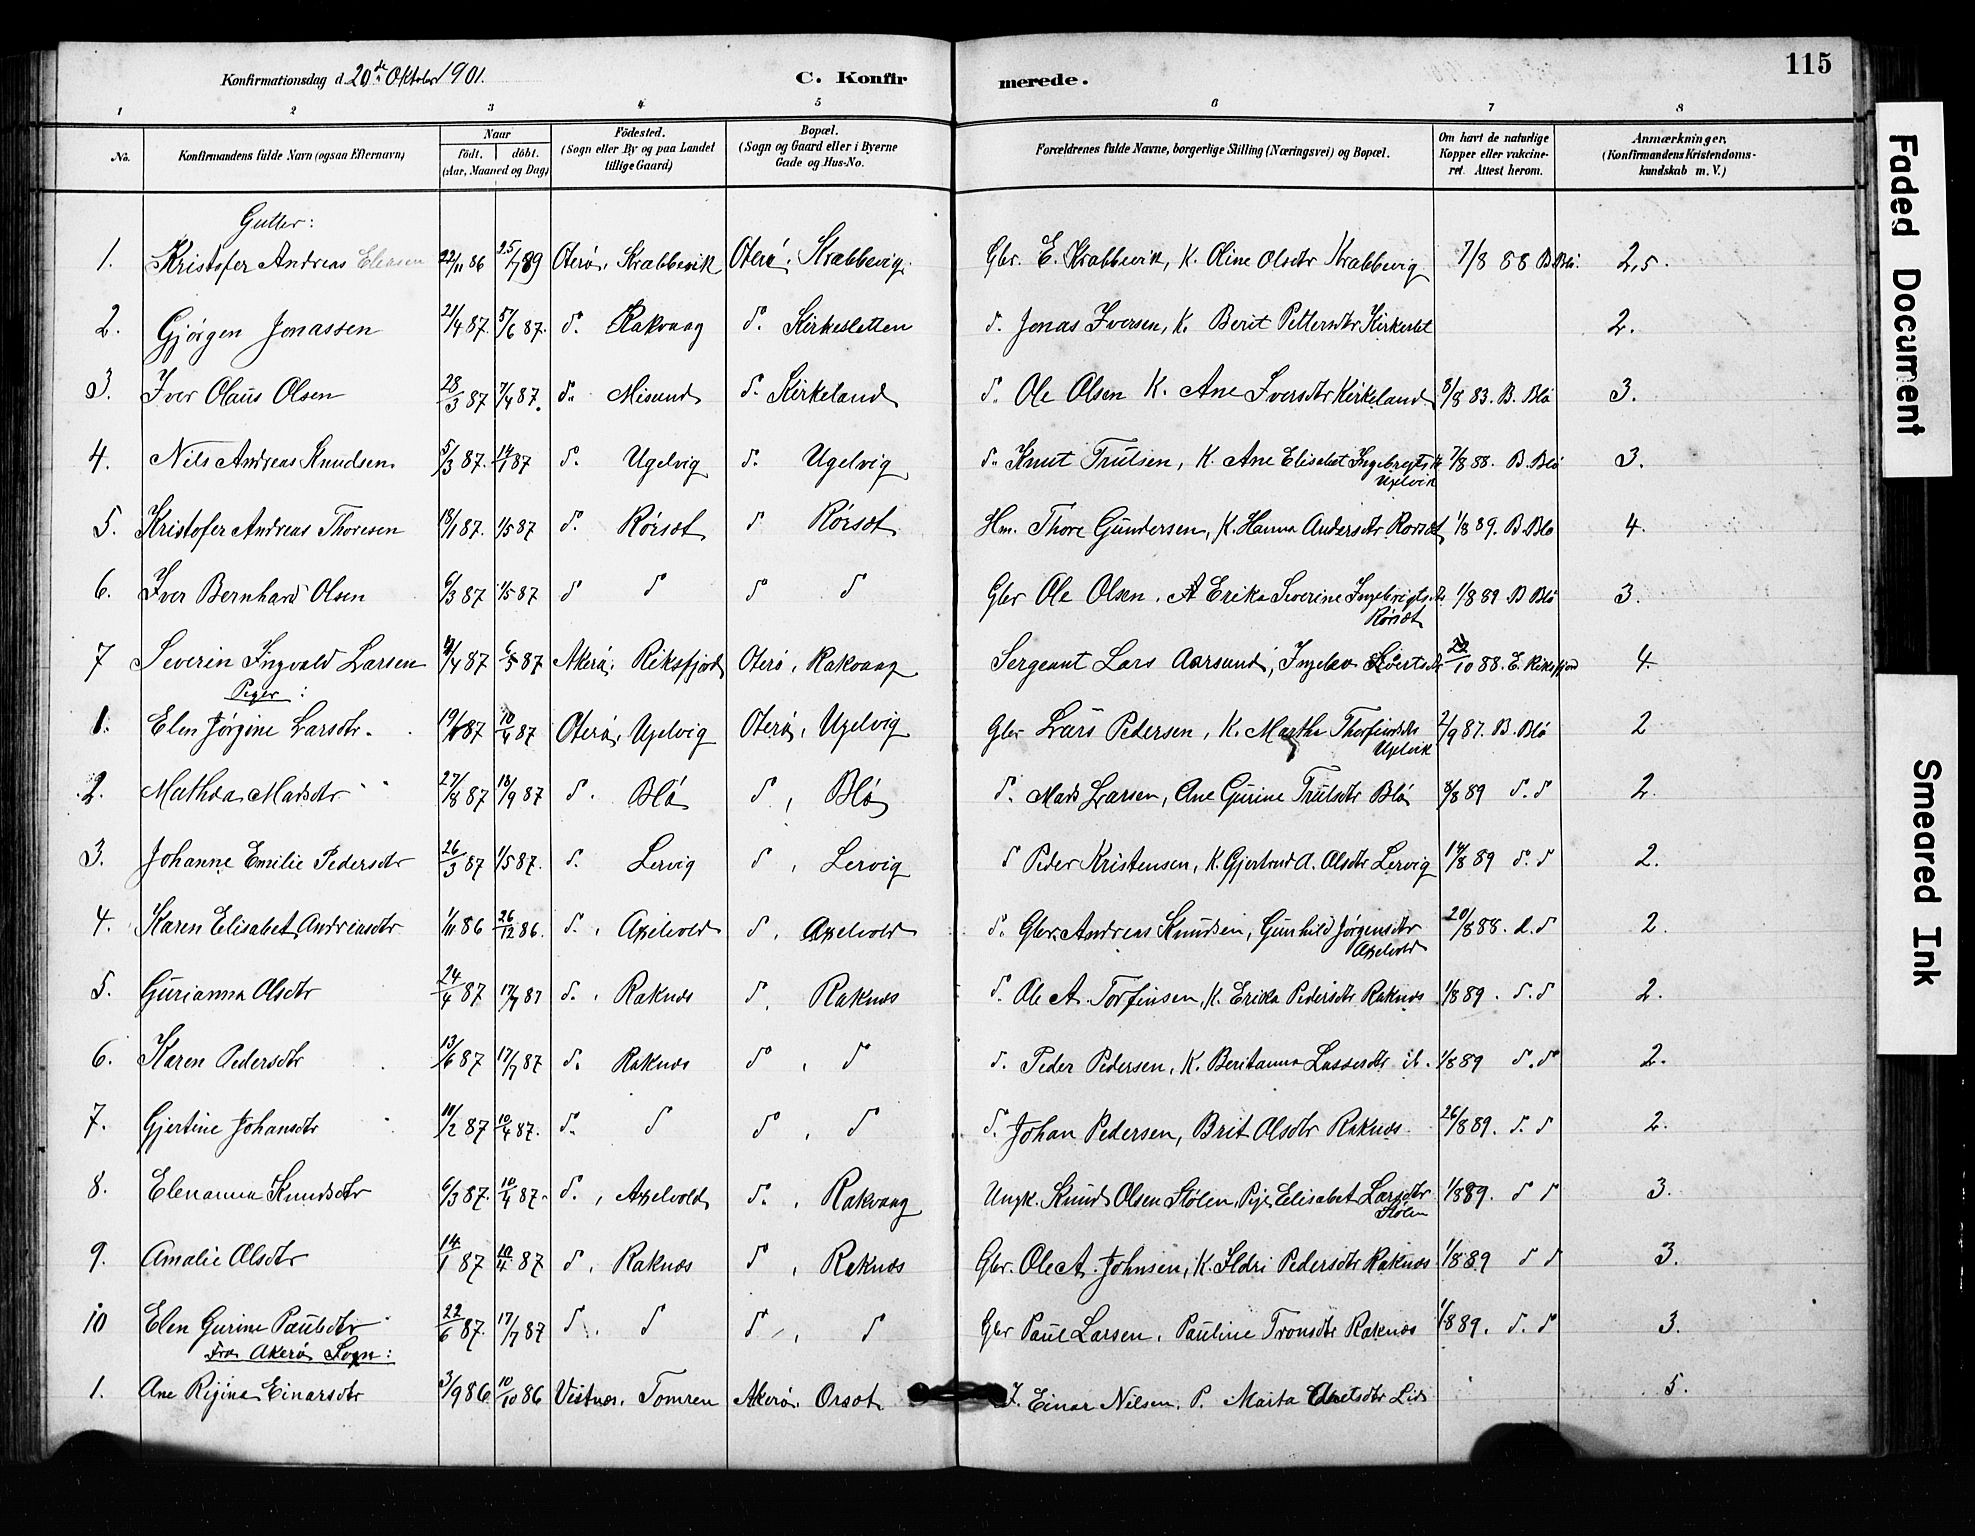 Konfirmationsdag d. 20de Oktober 1901.
C. Konfir
merede.
115
1 2 3 4 5 6 7 8
No. Konfirmandens fulde Navn (ogsaa Efternavn) Naar født. døbt. (Aar, Maaned og Dag) Fødested. (Sogn eller By og paa Landet tillige Gaard) Bopæl. (Sogn og Gaard eller i Byerne Gade og Hus-No. Forældrenes fulde Navne, borgerlige Stilling (Næringsvei) og Bopæl. Om havt de naturlige Kopper eller vakcineret. Attest herom. Anmærkninger, (Konfirmandens Kristendomskundskab m. V.)
Gutter:
1. Kristofer Andreas Eliasen 22/11 86 25/7 89 Oterø, Krabbevik Oterø, Krabbevig. Gbr. E. Krabbevik, K. Oline Olsdtr Krabbevig 7/8 88 B. Blø. 2,5.
2. Gjørgen Jonassen 21/4 87. 5/6 87. d° Rakvaag d° Kirkesletten d. Jonas Iversen, K. Berit Pettersdtr Kirkeslet 2.
3. Iver Olaus Olsen 28/3 87 7/4 87. d° Misund d° Kirkeland d. Ole Olsen K. Ane Iversdtr Kirkeland 8/8 83. B. Blø 3.
4. Nils Andreas Knudsen 5/3 87. 14/1 87 d° Ugelvig d° Ugelvig d. Knut Trulsen, K. Ane Elisabet Ingebregtsdtr Ugelvik 7/8 88. B. Blø 3.
5. Kristofer Andreas Thoresen 18/1 87. 1/5 87 d° Rørsæt d° Rørsæt Hm. Thore Gundersen, K. Hanna Andersdtr Rørsæt 1/8 89. B. Blø 4.
6. Iver Bernhard Olsen 6/3 87 1/5 87 d° d° d° d° Gbr Ole Olsen, A Erika Severine Ingebrigtsdtr Rørsæt 1/8 89 B Blø 3.
7 Severin Ingvald Larsen /4 87 6/5 87 Akerø, Riksfjord Oterø, Rakvaag Sergeant Lars Aarsund, Ingeb Sivertsdtr /10 88. E. Riksfjord 4.
Piger:
1. Elen Jørgine Larsdtr. 19/1 87 10/4 87 Oterø, Ugelvig Oterø, Ugelvig Gbr Lars Pedersen, K. Marthe Thorfinsdtr Ugelvik 2/9 87. B. Blø 2
2. Mathea Madsdtr 27/8 87 18/9 87 d° Blø d°, Blø d. Mads Larsen, Ane Gurine Trulsdtr Blø 8/8 89 d. d 2.
3. Johanne Emilie Pedersdtr 26/3 87 1/5 87. d° Lervig d°, Lervig d Peder Kristensen, K. Gjertrud A. Olsdtr Lervig 14/8 89 d. d 2.
4. Karen Elisabet Andreasdtr 1/11 86 26/12 86. d°, Axelvold d°, Axelvold d. Gbr. Andreas Knudsen, Gunhild Jørgensdtr Axelvold 20/8 88. d. d 2.
5. Gurianna Olsdtr 24/4 87 17/7 87 d., Raknes d., Raknes d. Ole A. Torfinsen, K. Erika Pedersdtr Raknes 1/8 89. d. d 2.
6. Karen Pedersdtr 13/6 87 17/7 87 d. Raknes d°, d° d. Peder Pedersen, K. Beritanna Lassesdtr ib. 1/8 89 d. d 2.
7. Gjertine Johansdtr 11/2 87 10/4 87. d. d° d°, d° d. Johan Pedersen, Brit Olsdtr Raknes. 26/8 89. d. d 2.
8. Elenanna Knudsdtr 6/3 87. 10/4 87. d., Axelvold d., Rakvaag Ungk. Knud Olsen Stølen, Pige Elisabet Larsdtr Stølen 1/8 89. d d 3.
9. Amalie Olsdtr 14/1 87 10/4 87 d, Raknes d°, Raknes Gbr. Ole A. Johnsen, K. Ildri Pedersdtr Raknes 1/8 89 d d 3.
10 Elen Gurine Paulsdtr 22/6 87. 17/7 87 d, d° d°, d Gbr Paul Larsen, Pauline Tronsdtr Raknes 1/8 89. d. d 3.
Fra Akerø Sogn:
1. Ane Regina Einarsdtr 3/9 86 10/10 86 Vestnes, Tomren Akerø, Orset F. Einar Nilsen, P. Marta Lid 5.
Faded Document
Smeared Ink